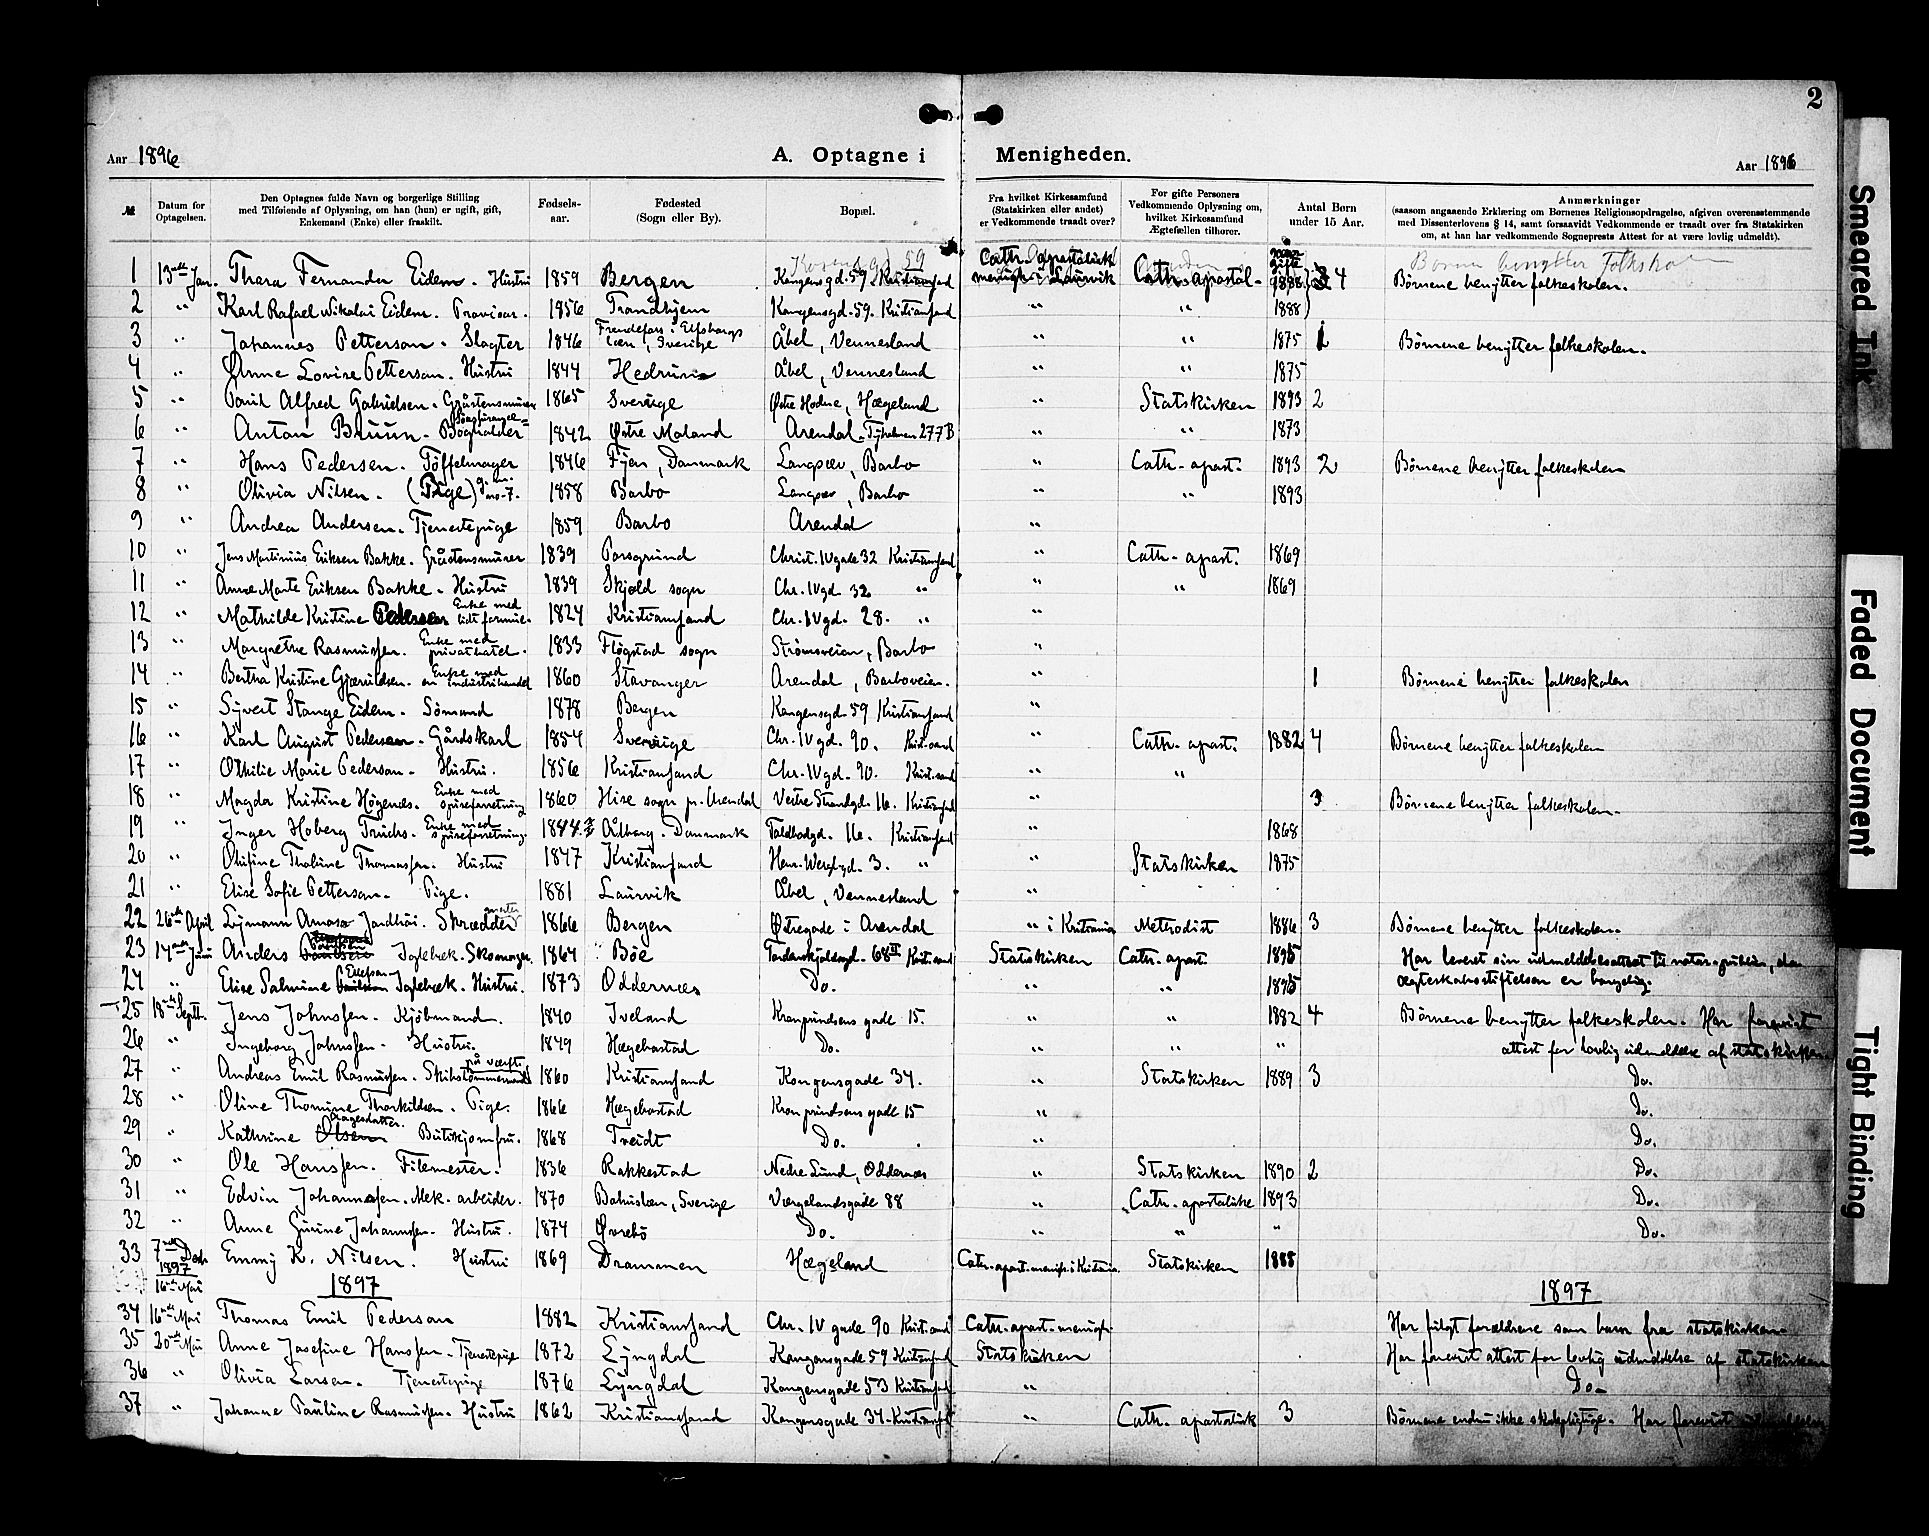 2
Aar 1896 A. Optagne i Menigheden. Aar 1896
№ Datum for Optagelsen. Den Optagnes fulde Navn og borgerlige Stilling med Tilføiende af Oplysning, om han (hun) er ugift, gift, Enkemand (Enke) eller fraskilt. Fødsels-aar. Fødested (Sogn eller By). Bopæl. Fra hvilket Kirkesamfund (Statskirken eller andet) er Vedkommende traadt over? For gifte Personers Vedkommende Oplysning om, hvilket Kirkesamfund Ægtefællen tilhører. Antal Børn under 15 Aar. Anmærkninger (saasom angaaende Erklæring om Børnenes Religionsopdragelse, afgiven overensstemmende med Dissenterlovens § 14, samt forsaavidt Vedkommende er traadt over fra Statskirken om, at han har vedkommende Sogneprests Attest for at være lovlig udmeldt).
1 13de Jan. Thora Fernanda Eidem. Hustru 1859 Bergen Kongensgd. 59 Kristiansand Cath. Apostolisk menigh. i Laurvik Cath. apostol. 1888 4 Børnene benytter folkeskolen.
2 " Karl Rafael Nikolai Eidem. Provisor. 1856 Trondhjem Kongensgd. 59. Kristiansand " " 1888
3 " Johannes Petterson. Slagter 1846 Elfsborgs læn, Sverige Åbel, Vennesland " " 1875 1 Børnene benytter folkeskolen.
4 " Anne Lovise Petterson. Hustru 1844 Hedrum Åbel, Vennesland " " 1875
5 " Alfred Gabrielsen. Gråstensmurer 1865 Sverige Østre Hodne, Hægeland " Statskirken 1893 2
6 " Anton Bruun. Bogholder 1842 Østre Moland Arendal. Tyholmen 277B " " 1873
7 " Hans Pedersen. Tøffelmager 1846 Fyen, Danmark Langsæv, Barbo " Cath. apost. 1893 2 Børnene benytter folkeskolen
8 " Olivia Nilsen. (Pige) 1858 Barbo Langsæv, Barbo " " 1893
9 " Andrea Andersen. Tjenestepige 1859 Barbo Arendal "
10 " Jens Martinius Eriksen Bakke. Gråstensmurer 1839 Porsgrund Christ. IV gade 32 Kristiansand " Cath. apost. 1869
11 " Anne Marte Eriksen Bakke. Hustru 1839 Skjold sogn Chr. IV gd. 32 " " " 1869
12 " Mathilde Kristine Pedersen Enke med lidt formue. 1824 Kristiansand Chr. IV gd. 28. " "
13 " Margrethe Rasmussen. Enke med privathotel. 1833 Fløgstad sogn Strømsveien, Barbo "
14 " Bertha Kristine Gjæruldsen. Enke med en industrihandel 1860 Stavanger Arendal, Barboveien. " 1 Børnene benytter folkeskolen
15 " Syvert Stange Eidem. Sømand 1878 Bergen Kongensgd. 59 Kristiansand "
16 " Karl August Pedersen. Gårdskarl 1854 Sverige Chr. IV gd. 90. Krist.sand " Cath. apost. 1882 4 Børnene benytter folkeskolen
17 " Othilie Marie Pedersen. Hustru. 1856 Kristiansand Chr. IV gd. 90. Krist.sand " "
18 " Magda Kristine Høgenæs. Enke med spiseforretning 1860 Hise sogn p. Arendal Vestre Strandgd. 16. Kristiansand " 3 Børnene benytter folkeskolen.
19 " Inger Hoberg Fruchs. Enke med spiseforretning. 1844 Ålborg. Danmark Toldbodgd. 16. Kristiansand " 1868
20 " Olufine Thobine Thomassen. Hustru 1847 Kristiansand Henr. Wergelgd. 3. " " Statskirken 1875
21 " Elise Sofie Petterson. Pige. 1881 Laurvik Åbel, Vennesland "
22 26de April Lymann Amasa Jondhui. Skrædder 1866 Bergen Østregade i Arendal " i Kristiania Methodist 1886 3 Børnene benytter folkeskolen.
23 14de Juni Anders Iglebæk. Skomager. 1864 Bøe Tordenskjoldsgd. 68 II Krist.sand Statskirken Cath. apost. 1895 Har levert sin udmeldelsesattest til notar. publicus, da
24 " Elise Palmine Iglebæk. Hustru. 1873 Oddernæs Do. " " 1895 ægteskabsstiftelsen er borgelig.
25 18de Septbr. Jens Johnsen. Kjøbmand. 1840 Iveland Kronprindsens gade 15. " " 1882 4 Børnene benytter folkeskolen. Har forevist
26 " Ingeborg Johnsen. Hustru. 1849 Hægebostad Do. " " " attest for lovlig udmeldelse af statskirken.
27 " Andreas Emil Rasmussen. Skibstømmermand på værft. 1860 Kristiansand Kongensgade 34. " Statskirken 1889 3 Do.
28 " Oline Thomine Thorkildsen. Pige. 1866 Hægebostad Kronprindsens gade 15 " Do.
29 " Kathrine Olsen Butikjomfru. 1868 Treidt Do. " Do.
30 " Ole Hanssen. Filemester. 1836 Rakkestad Nedre Lund, Oddernæs " Statskirken 1890 2 Do.
31 " Edvin Johannesen. Mek. arbeider. 1870 Bahuslæn, Sverige Værgelandsgade 88 " Cath. apostoliske 1893 Do.
32 " Anne Gurine Johannesen. Hustru. 1874 Øvrebø Do. " " " Do.
33 7de Decbr. Emmy K. Nilsen. Hustru 1869 Drammen Hægeland Cath. apost. menigh. i Kristiania. Statskirken 1888
1897
16de Mai
1897 1897
34 16de Mai Thomas Emil Pedersen 1882 Kristiansand Chr. IV gade 90 Krist.sand Cath. apost. menigh. Har fulgt forældrene som barn fra statskirken.
35 20de Mai Anne Josefine Hanssen. Tjenestepige 1872 Lyngdal Kongensgade 59 Kristiansand Statskirken Har forevist attest for lovlig udmeldelse af statskirken
36 " Olivia Larsen. Tjenestepige 1876 Lyngdal Kongensgade 53 Kristiansand " Do.
37 " Johanne Pauline Rasmussen. Hustru 1862 Kristiansand Kongensgade 34. Kristiansand " Cath. apostolisk 3 Børnene endnu ikke skolepligtige. Har forevist
Smeared Ink
Faded Document
Tight Binding